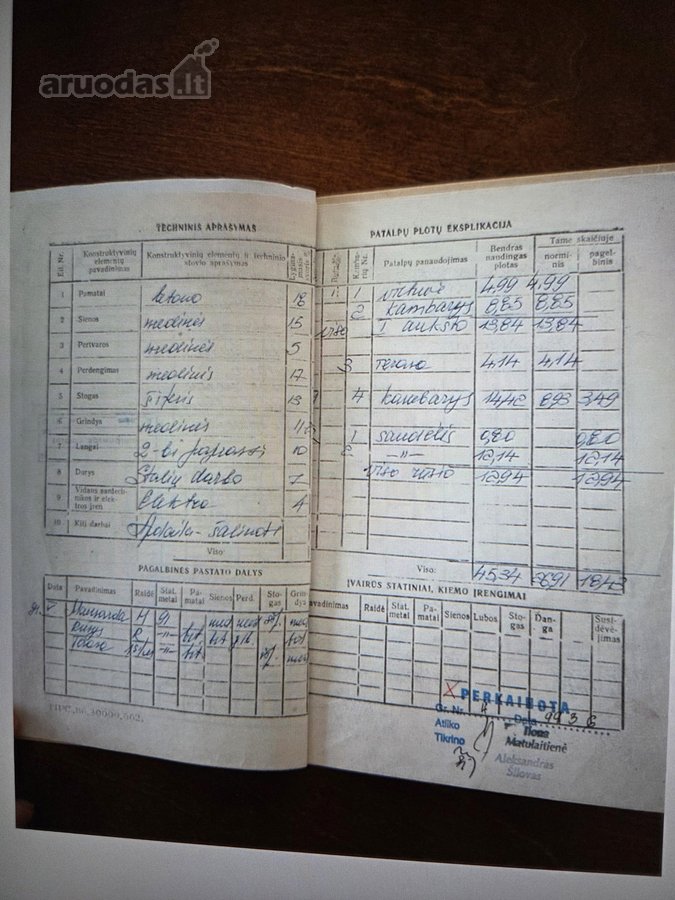 aruodas.lt
TECHNINIS APRAŠYMAS
Eil. Nr. Konstruktyvinių elementų pavadinimas Konstruktyvinių elementų ir techninio stovio aprašymas
1 Pamatai betono 18
2 Sienos medinės 15
3 Pertvaros medinės 5
4 Perdengimas medinis 17
5 Stogas šiferis 13
6 Grindys medinės
7 Langai 2-bi paprasti 10
8 Durys Stalių darbo 7
9 Vidaus santechnikos ir elektros įren. Elektra 4
10 Kiti darbai Apdaila-
Viso:
PAGALBINĖS PASTATO DALYS
Data Pavadinimas Raidė Stat. metai Pamatai Sienos Perd. Stogas Grindys
Mansarda M 91 med med
Rūsys R -"- bet bet g/b bet
Terasa -"- bet
PATALPŲ PLOTŲ EKSPLIKACIJA
Kambarių Nr. Patalpų panaudojimas Bendras naudingas plotas Tame skaičiuje norminis pagelbinis
1 virtuvė 4,99 4,99
2 kambarys 8,85 8,85
I aukšto 13,84 13,84
3 terasa 4,14 4,14
4 kambarys 14,42 8,93 3,49
1 sandėlis 0,80 0,80
2 -"- 12,14 12,14
Viso rūsio 12,94 12,94
Viso: 45,34
ĮVAIRŪS STATINIAI, KIEMO ĮRENGIMAI
Pavadinimas Raidė Stat. metai Pamatai Sienos Lubos Stogas Danga Susidėvėjimas
PERKAINOTA
Gr. Nr. Data 99 3 6
Atliko Ilona Matulaitienė
Tikrino Aleksandras Šilovas